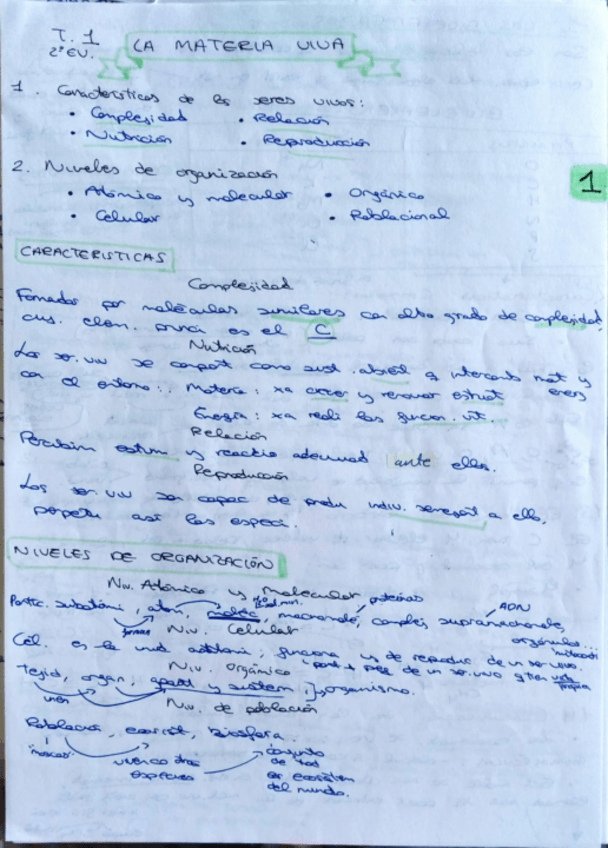 T. 1
2ª EV.
LA MATERIA VIVA
1. Características de los seres vivos:
• Complejidad • Relación
• Nutrición • Reproducción
2. Niveles de organización
• Atómico y molecular • Orgánico
• Celular • Poblacional
1
CARACTERISTICAS
Complejidad
Formados por moléculas similares con alto grado de complejidad,
cus. elem. princi es el C
Nutrición
Los ser. viv se comport como sist. abiert q intercamb mat y
con el entorno: Materia: xa crecer y renovar estruct
Energía: xa reali las funcion. vit.
Relación
Perciben estim y reaccio adecuad ante ellos.
Reproducción
Los ser. viv son capac de produ indiv. semejant a ello,
perpetu así las especi.
NIVELES DE ORGANIZACIÓN
Niv. Atómico y molecular
Partíc. subatómi, atom, moléc, macromolé, complej supramacromole,
proteínas
ADN
forman
orgánulos...
Niv. Celular
Cél. es la unid anatómi, funciona y de reproduc. de un ser vivo.
Niv. orgánico
Tejid, organ, aparat y sistem, organismo.
unen
Niv. de población
Población, ecosist, biosfera.
"moscas"
viven con otras
especies
conjunto
de tod
os ecosistem
del mundo.